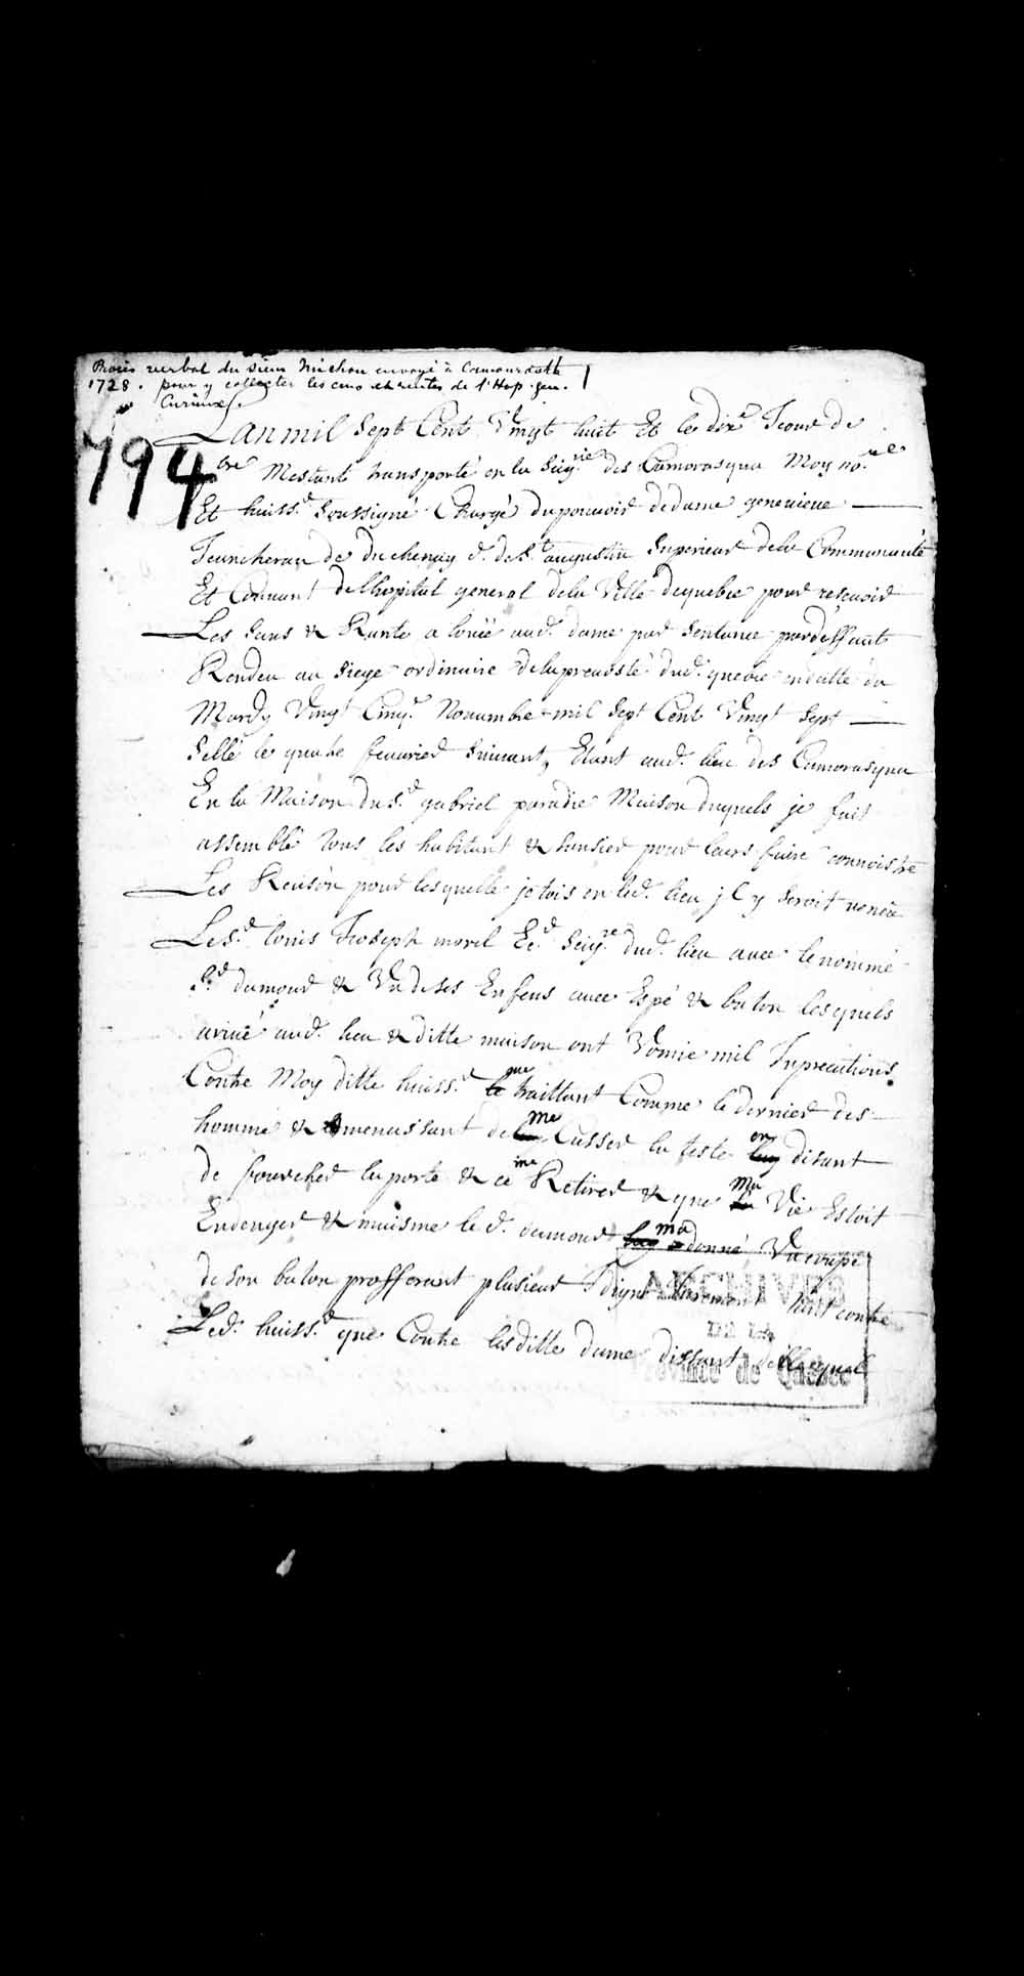 Procès verbal du sieur Michon envoyé à Camouraska
1728. pour y collecter les cens et rentes de l'Hop. gen.
Curieux.
794
Lanmil Sept Cent Vingt huit Et le dixe Jour de
bre Mestant transporté en la Seigrie des Camorasqua Moy nore
Et huissr Soussigné Chargé dupouvoir dedame genevieve
Jeuchereau de Duchenay d. de St augustin Superieur dela Communauté
Et Couvant delhopital general dela Ville dequebec pour resevoir
Les Sans & Rante a louée aud. dame par Sentance pardeffaut
Rendeu au Siege ordinaire delaprevosté dud. quebec endatte du
Mardy Vingt Cinq. Novambre mil Sept Cent Vingt Sept
Sellé le quatre fevrier Suivant, Etant aud. lieu des Camorasqua
En la Maison du Sr gabriel paradie Maison duquels je fait
assemblé tous les habitant & Sansier pour leurs faire connoistre
Les Raison pour lesquelle jetois en led. lieu jl y Seroit venüe
Le Sr louis Joseph morel Ecr Seigre dud. lieu avec le nommé
Sr dumond & Un de ses Enfens avec Espé & baton lesquels
arivé aud. lieu & ditte maison ont Vomie mil Inprecations
Contre Moy ditte huissr le me traittant Comme le dernier des
homme & menassant de me Casser la teste en disant
de me Retirer & que ma Vie Estoit
Endenger & maisme le d. dumond ma donné Un coupe
de son baton profferant plusieur tant contre
Led. huissr que Contre lesditte dame dissant
ARCHIVES
DE LA
Province de Québec